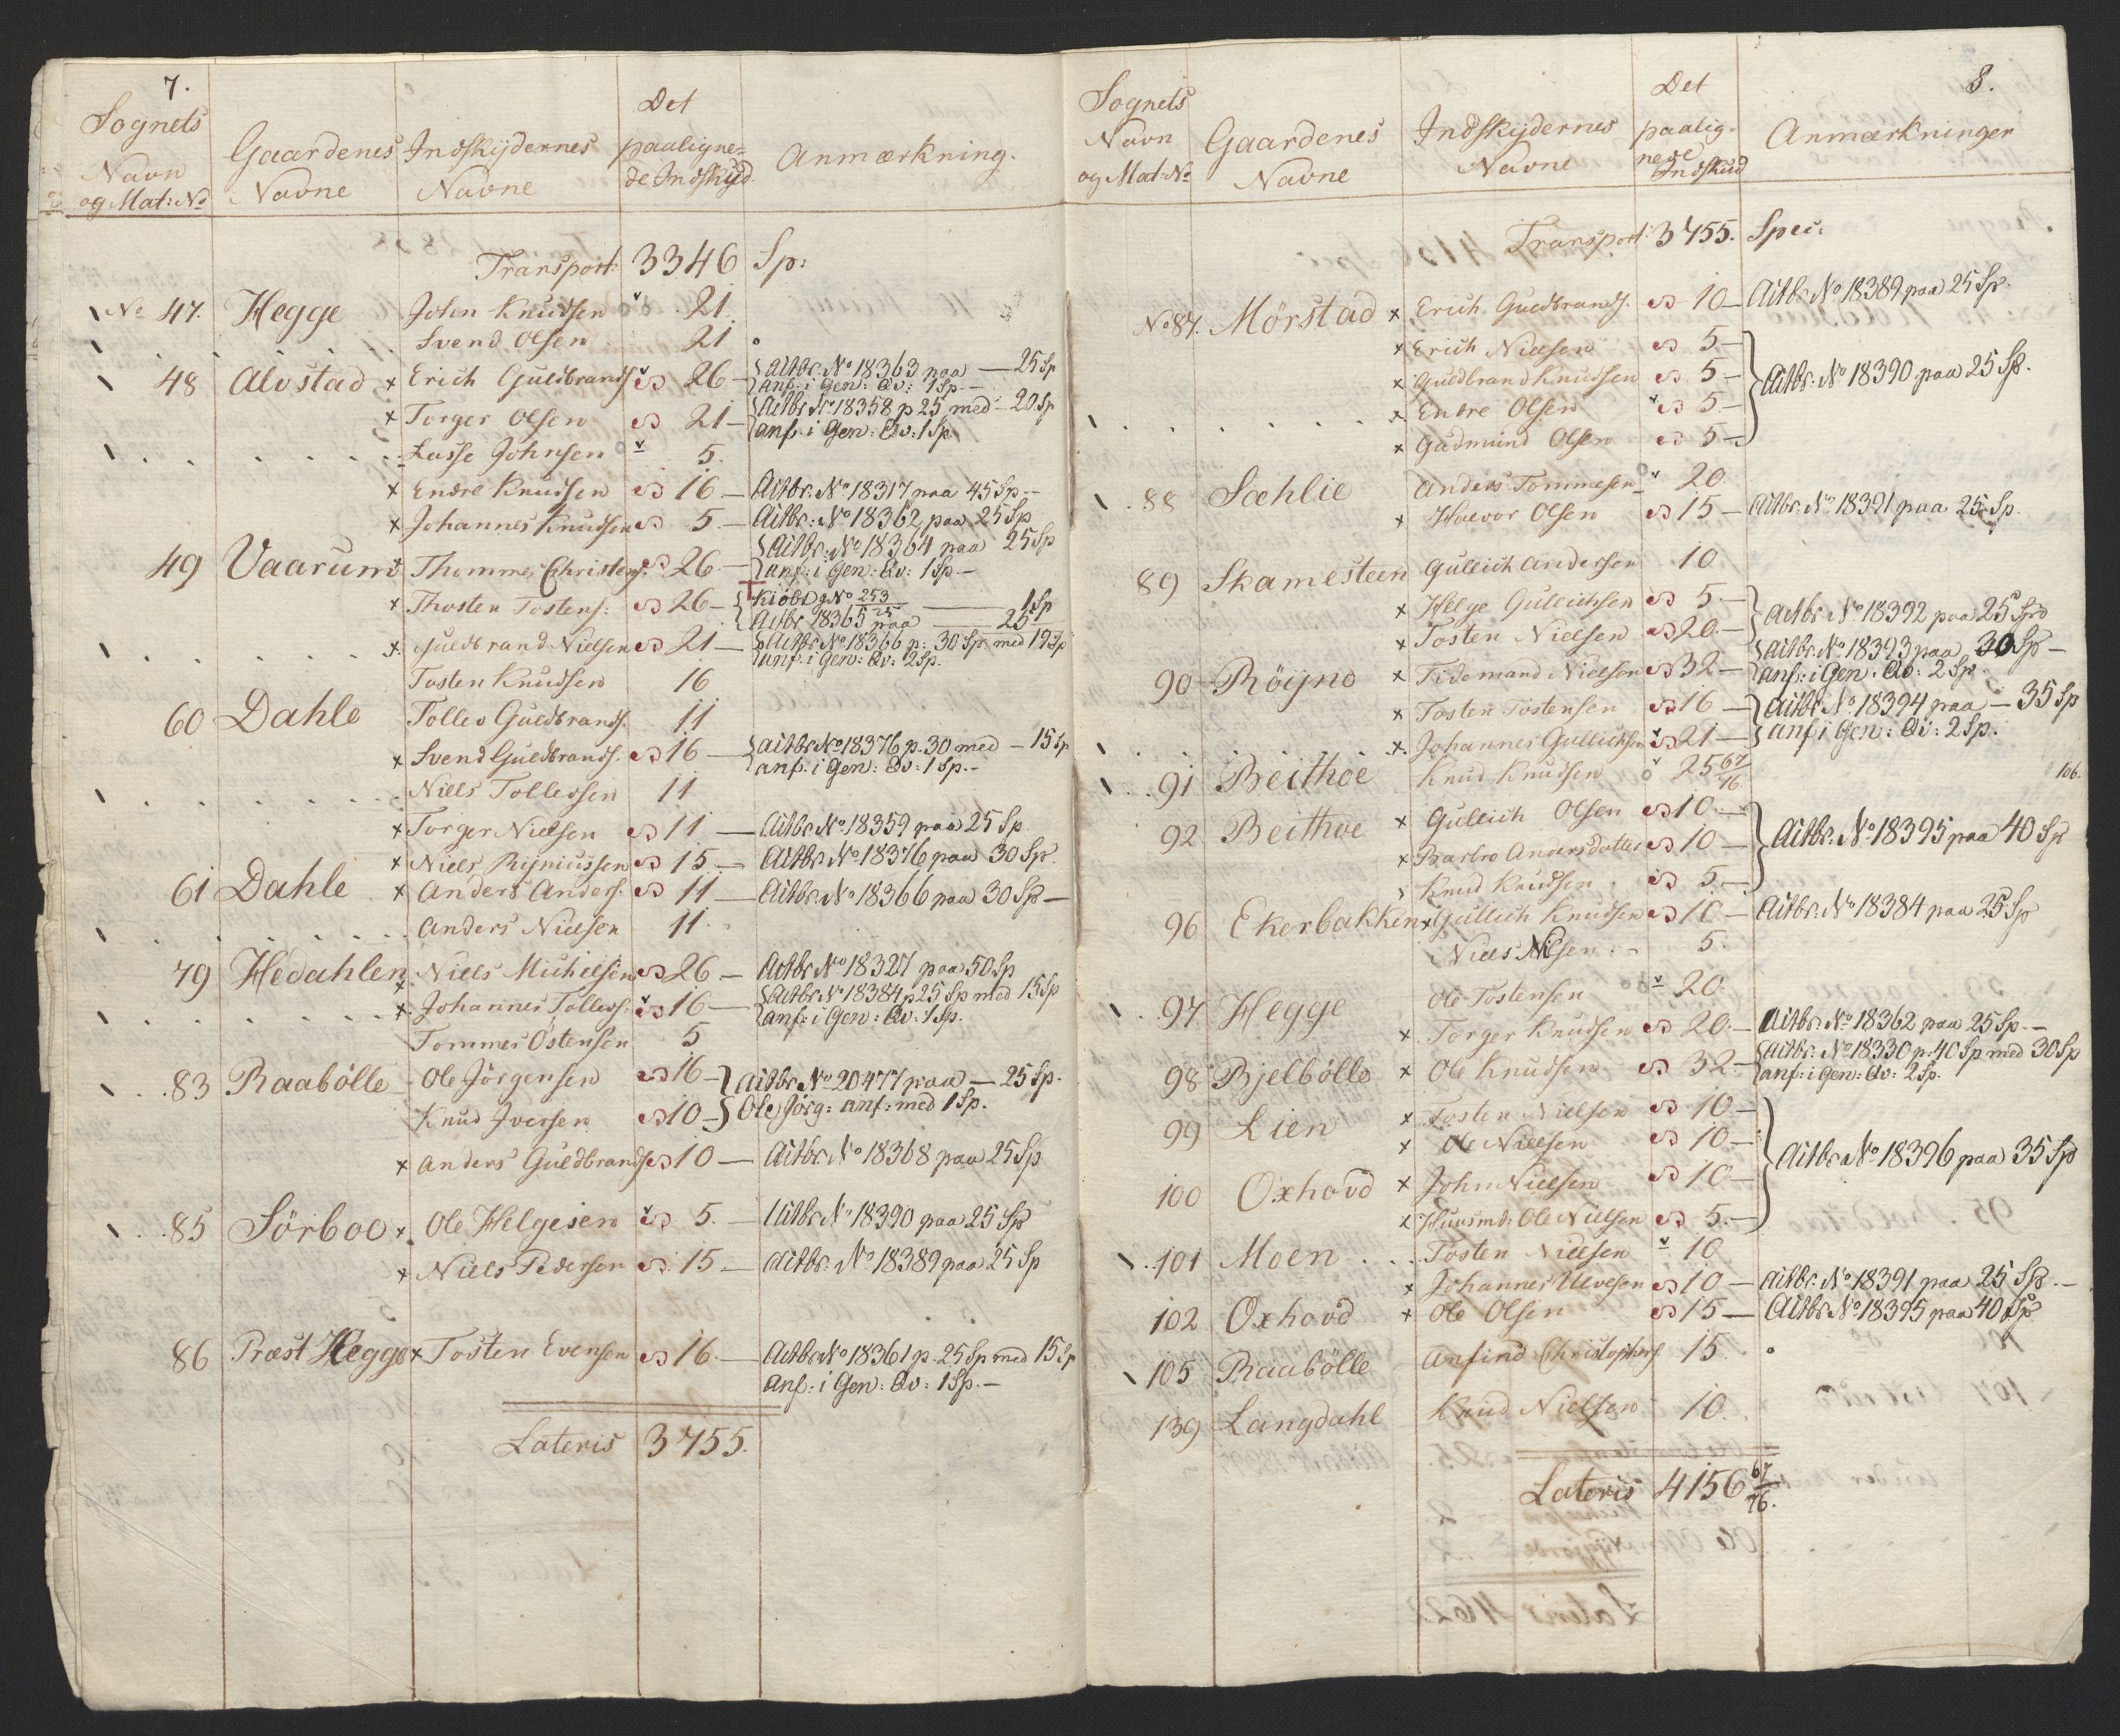 7.
Sognets Navn og Mat: No | Gaardenes Navne | Indskydernes Navne | Det paaligne- de Indskud | Anmærkning.
Transport: 3346 Sp:
No 47. Hegge John Knudsen 21.
Svend Olsen 21
48 Alvstad x Erich Guldbrands. 26 — Aitbr. No 18363 paa — 25 Sp
anf: i Gen: Qv: 1 Sp. —
x Torger Olsen 21 — Aitbr. No 18358 p 25 med — 20 Sp
anf. i Gen: Qv: 1 Sp.
Lasse Johnsen 5.
x Endre Knudsen 16 — Aitbr. No 18317 paa 45 Sp —
x Johannes Knudsen 5. — Aitbr: No 18362 paa 25 Sp
49 Vaarum x Thommes Christens. 26 — Aitbr: No 18364 paa 25 Sp
anf: i Gen: Qv: 1 Sp. —
x Thosten Tostens: 26 — Kiöbs No 253 — 1 Sp
Aitbr 18365 paa — 25
x Guldbrand Nielsen 21 — Aitbr. No 18366 p: 30 Sp. med 19 Sp
anf. i Gen: Qv: 2 Sp.
Tosten Knudsen 16
60 Dahle Tollev Guldbrands. 11
x Svend Guldbrands. 16 — Aitbr No 18376 p. 30 med — 15 Sp
anf. i Gen: Qv: 1 Sp. —
Niels Tollevsen 11
x Torger Nielsen 11 — Aitbr. No 18359 paa 25 Sp
x Niels Rejniussen 15. — Aitbr. No 18376 paa 30 Sp.
61 Dahle x Anders Anders. 11 — Aitbr. No 18366 paa 30 Sp —
Anders Nielsen 11.
79 Hedahlen x Niels Michelsen 26 — Aitbr No 18327 paa 50 Sp
x Johannes Tollevs. 16 — Aitbr. No 18384 p 25 Sp med 15 Sp
anf: i Gen: Qv: 1 Sp.
Tommes Östensen 5
83 Raabölle Ole Jörgensen 16 — Aitbr. No 20477 paa — 25 Sp.
Knud Iversen 10 — Ole Jörg: anf: med 1 Sp.
x Anders Guldbrands. 10 — Aitbr. No 18368 paa 25 Sp
85 Sörboe x Ole Helgesen 5. — Aitbr No 18390 paa 25 Sp
x Niels Pedersen 15 — Aitbr. No 18389 paa 25 Sp
86 Præst Hegge x Tosten Evensen 16. — Aitbr No 18361 p. 25 Sp med 15 Sp
Anf: i Gen: Qv: 1 Sp. —
Lateris 3755.
8.
Sognets Navn og Mat: No | Gaardenes Navne | Indskydernes Navne | Det paalig- nede Indskud | Anmærkninger
Transport: 3755. Spec:
No 87. Mörstad x Erich Guldbrands. 10 — Aitbr No 18389 paa 25 Sp.
x Erich Nielsen 5 —
x Guldbrand Knudsen 5 — Aitbr. No 18390 paa 25 Sp.
x Endre Olsen 5 —
x Gudmund Olsen 5 —
88 Sæhlie Anders Tommesen 20.
x Halvor Olsen 15 — Aitbr. No 18391 paa 25 Sp.
89 Skamesteen Gullich Andersen 10
x Helge Gullichsen 5 —
x Tosten Nielsen 20. — Aitbr No 18392 paa 25 Sp
90 Röijne x Tidemand Nielsen 32 — Aitbr. No 18393 paa 30 Sp —
anf: i Gen: Qv: 2 Sp.
x Tosten Tostensen 16 — Aitbr No 18394 paa — 35 Sp
x Johannes Gullichsen 21 — anf i Gen: Qv: 2 Sp.
91 Beithoe Knud Knudsen 25 67/76
106.
92 Beithoe x Gullich Olsen 10. —
x Barbro Andersdatter 10 — Aitbr. No 18395 paa 40 Sp
x Knud Knudsen 5. —
96 Ekerbakken x Gullich Knudsen 10 — Aitbr. No 18384 paa 25 Sp
Niels Nilsen 5.
97 Hegge Ole Tostensen 20.
x Torger Knudsen 20. — Aitbr. No 18362 paa 25 Sp. —
98 Bjelbölle x Ole Knudsen 32. — Aitbr: No 18330 p. 40 Sp med 30 Sp
anf: i Gen: Qv: 2 Sp.
99 Lien x Tosten Nielsen 10 —
x Ole Nielsen 10 —
100 Oxhovd x John Nielsen 10 — Aitbr No 18396 paa 35 Sp
x Huusmd: Ole Nielsen 5. —
101 Moen Tosten Nielsen 10
x Johannes Ulvesen 10 — Aitbr. No 18391 paa 25 Sp. —
102 Oxhovd x Ole Olsen 15 — Aitbr No 18395 paa 40 Sp
105 Raabölle Anfind Christophers. 15.
139 Langdahl Knud Nielsen 10.
Lateris 4156 67/76.